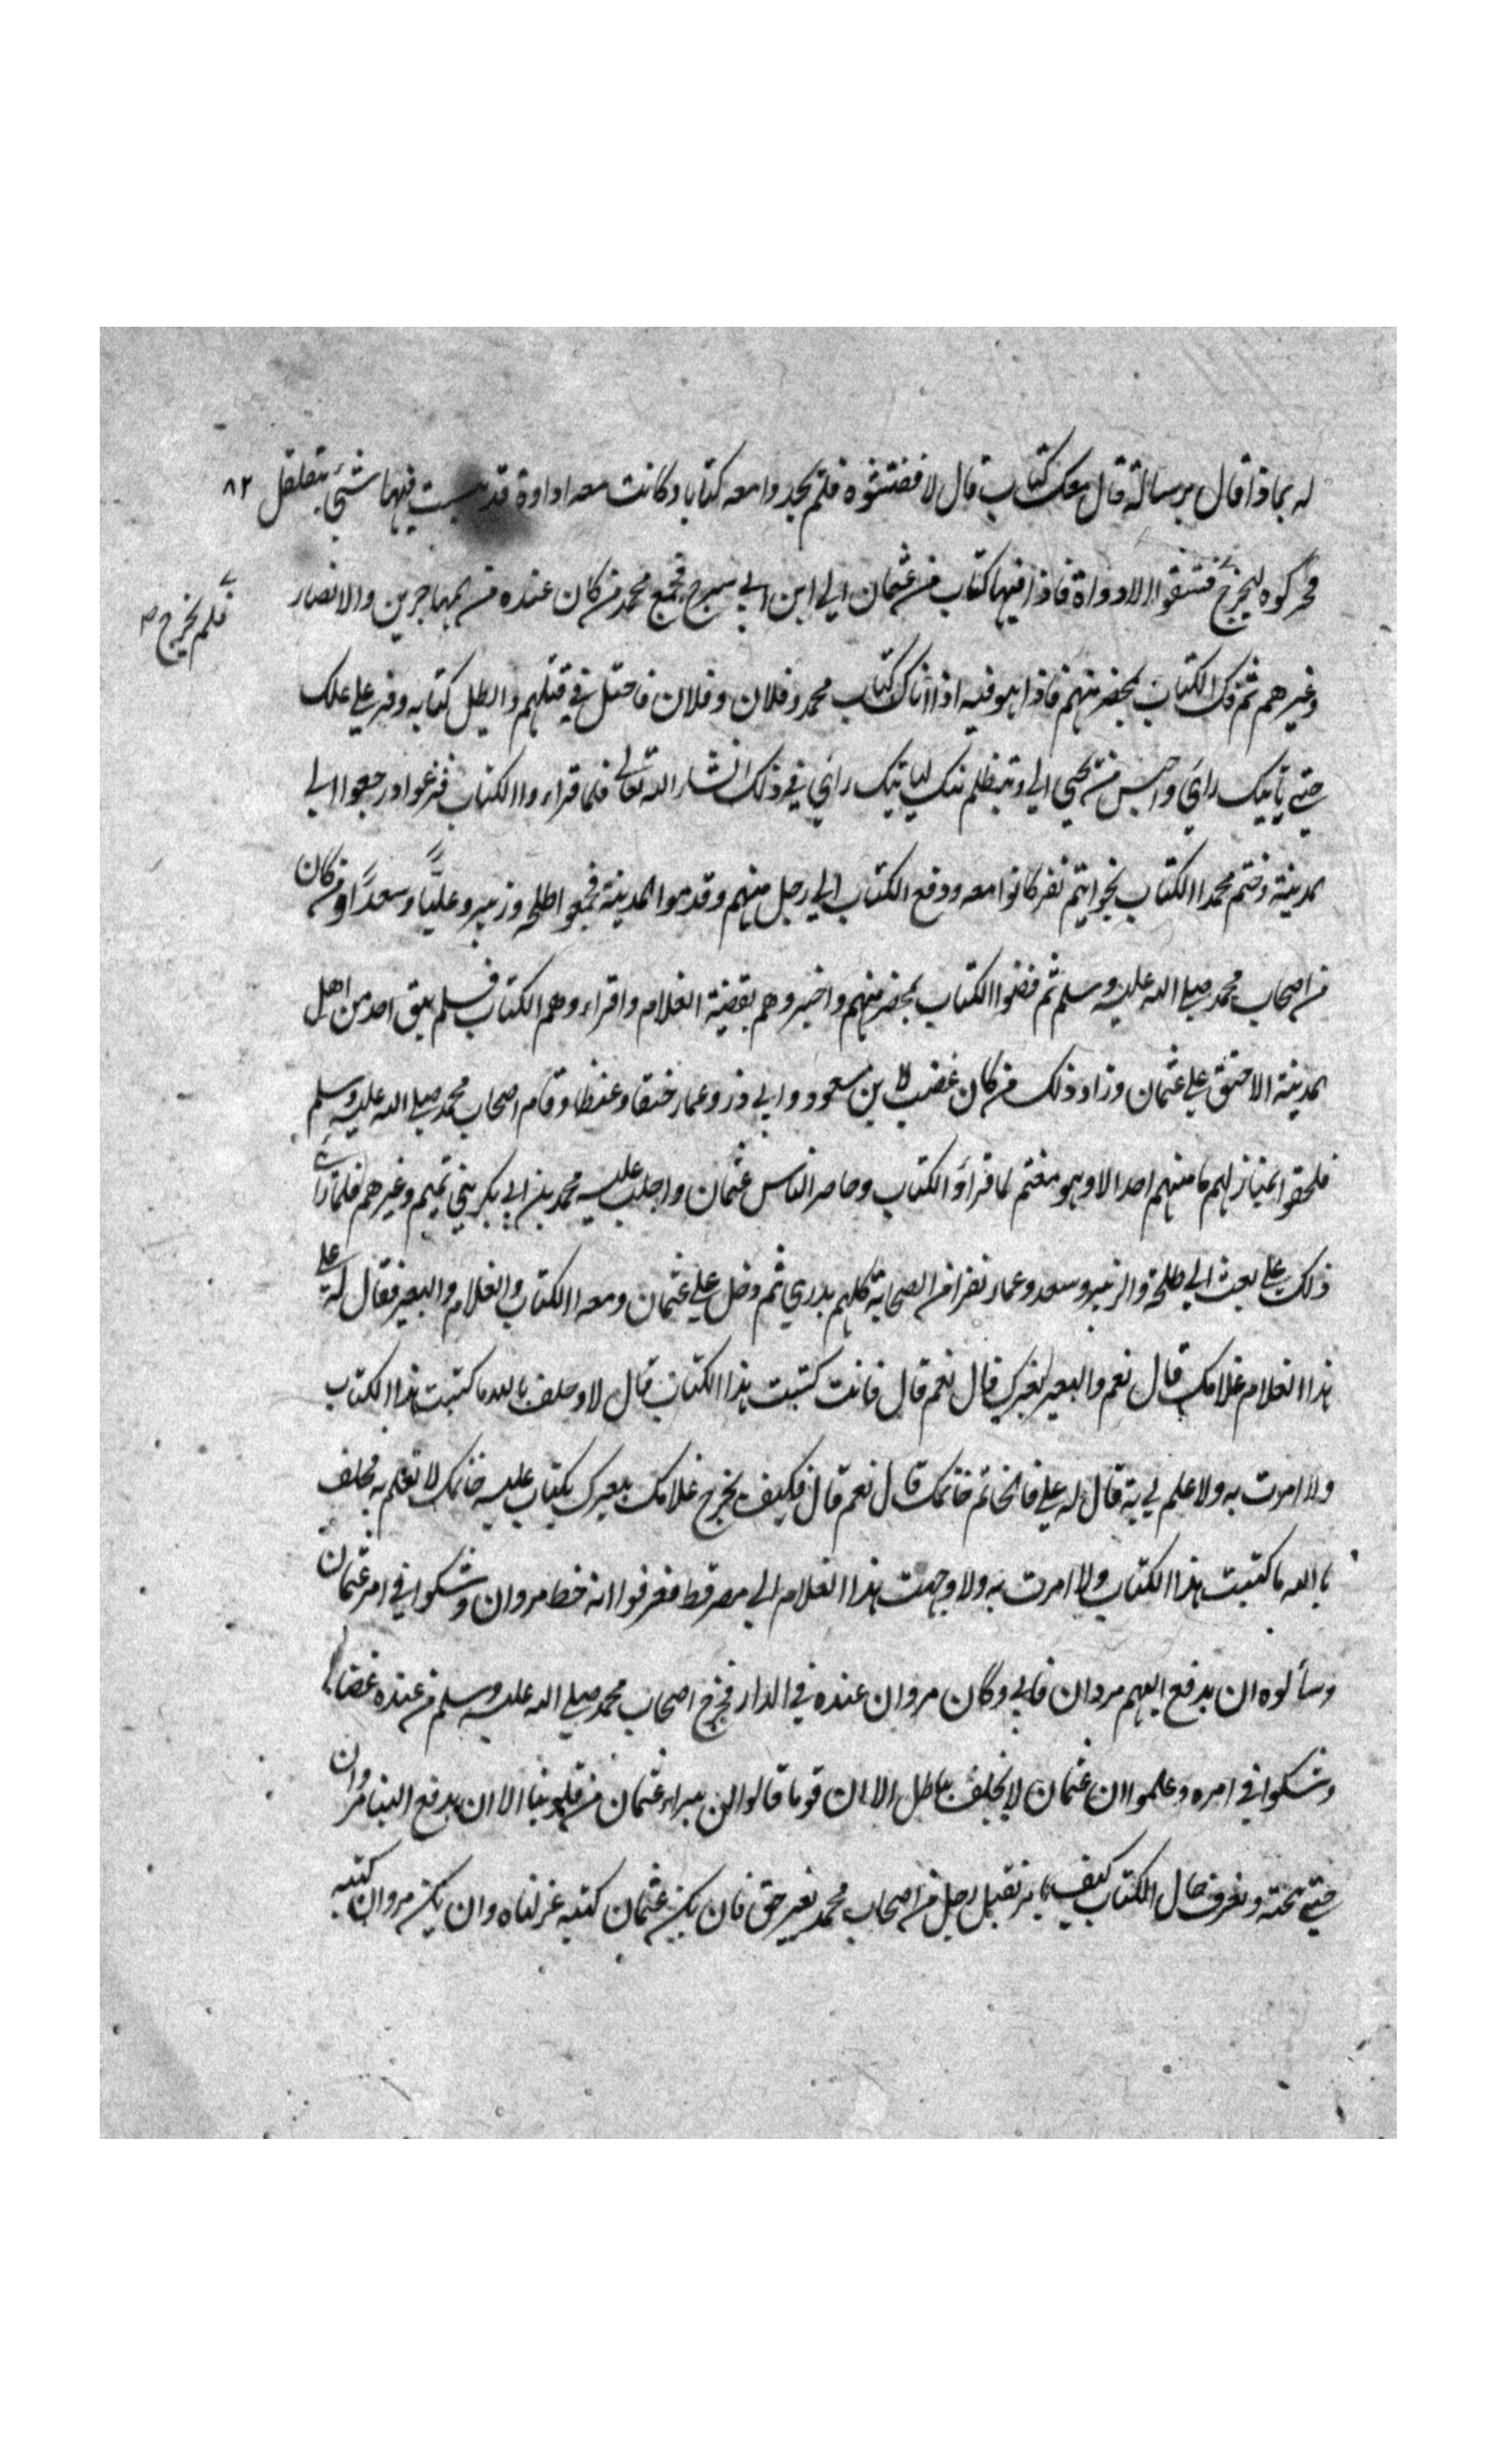 له بماذا قال برسالة قال معك كتاب قال لا ففتشوه فلم يجدوا معه كتابا وكانت معه اداوة قد يبست فيها شئ يتقلقل ٨٢
فحركوه ليخرج فشقوا الاداوة فاذا فيها كتاب من عثمان الي ابن ابي سرح فجمع محمد من كان عنده من المهاجرين والانصار
فلم يخرج صح
وغيرهم ثم فك الكتاب بمحضر منهم فاذا هو فيه اذا اتاك كتاب محمد وفلان وفلان فاحتل في قتلهم وابطل كتابه وقر علي عملك
حتي ياتيك رائي واحبس من يحي الي ويتظلم منك لياتيك رائي في ذلك انشاء الله تعالي فلما قراءوا الكتاب فزعوا ورجعوا الي
المدينة وختم محمد الكتاب بخواتيم نفر كانوا معه ودفع الكتاب الي رجل منهم وقدموا المدينة فجمعوا طلحه وزبير وعليًا وسعدًا ومن كان
من اصحاب محمد صلي الله عليه وسلم ثم فضوا الكتاب بمحضر منهم واخبروهم بقصة الغلام واقراءوهم الكتاب فلم يبق احد من اهل
المدينة الا حنق علي عثمان وزاد ذلك من كان غضب لابن مسعود وابي ذر وعمار حنقا وغيظا وقام اصحاب محمد صلي الله عليه وسلم
فلحقوا بمنازلهم ما منهم احد الا وهو مغتم لما قراؤ الكتاب وحاصر الناس عثمان واجلب عليه محمد بن ابي بكر بني تميم وغيرهم فلما راي
ذلك علي بعث الي طلحة والزبير وسعد وعمار نفرا من الصحابة كلهم بدري ثم دخل علي عثمان ومعه الكتاب والغلام والبعير فقال له علي
هذا الغلام غلامك قال نعم والبعير بعيرك قال نعم قال فانت كتبت هذا الكتاب قال لا وحلف بالله ما كتبت هذا الكتاب
ولا امرت به ولا علم لي به قال له علي فالخاتم خاتمك قال نعم قال فكيف يخرج غلامك ببعيرك بكتاب عليه خاتمك لا تعلم به فحلف
بالله ما كتبت هذا الكتاب ولا امرت به ولا وجهت هذا الغلام الي مصر قط فعرفوا انه خط مروان وشكوا في امر عثمان
وسألوه ان يدفع اليهم مروان فابي وكان مروان عنده في الدار فخرج اصحاب محمد صلي الله عليه وسلم من عنده غضابا
وشكوا في امره وعلموا ان عثمان لا يحلف بباطل الا ان قوما قالوا لن يبراء عثمان من قلوبنا الا ان يدفع الينا مروان
حتي نبحثه ونعرف حال الكتاب كيف يامر بقتل رجل من اصحاب محمد بغير حق فان يكن عثمان كتبه عزلناه وان يكن مروان كتبه